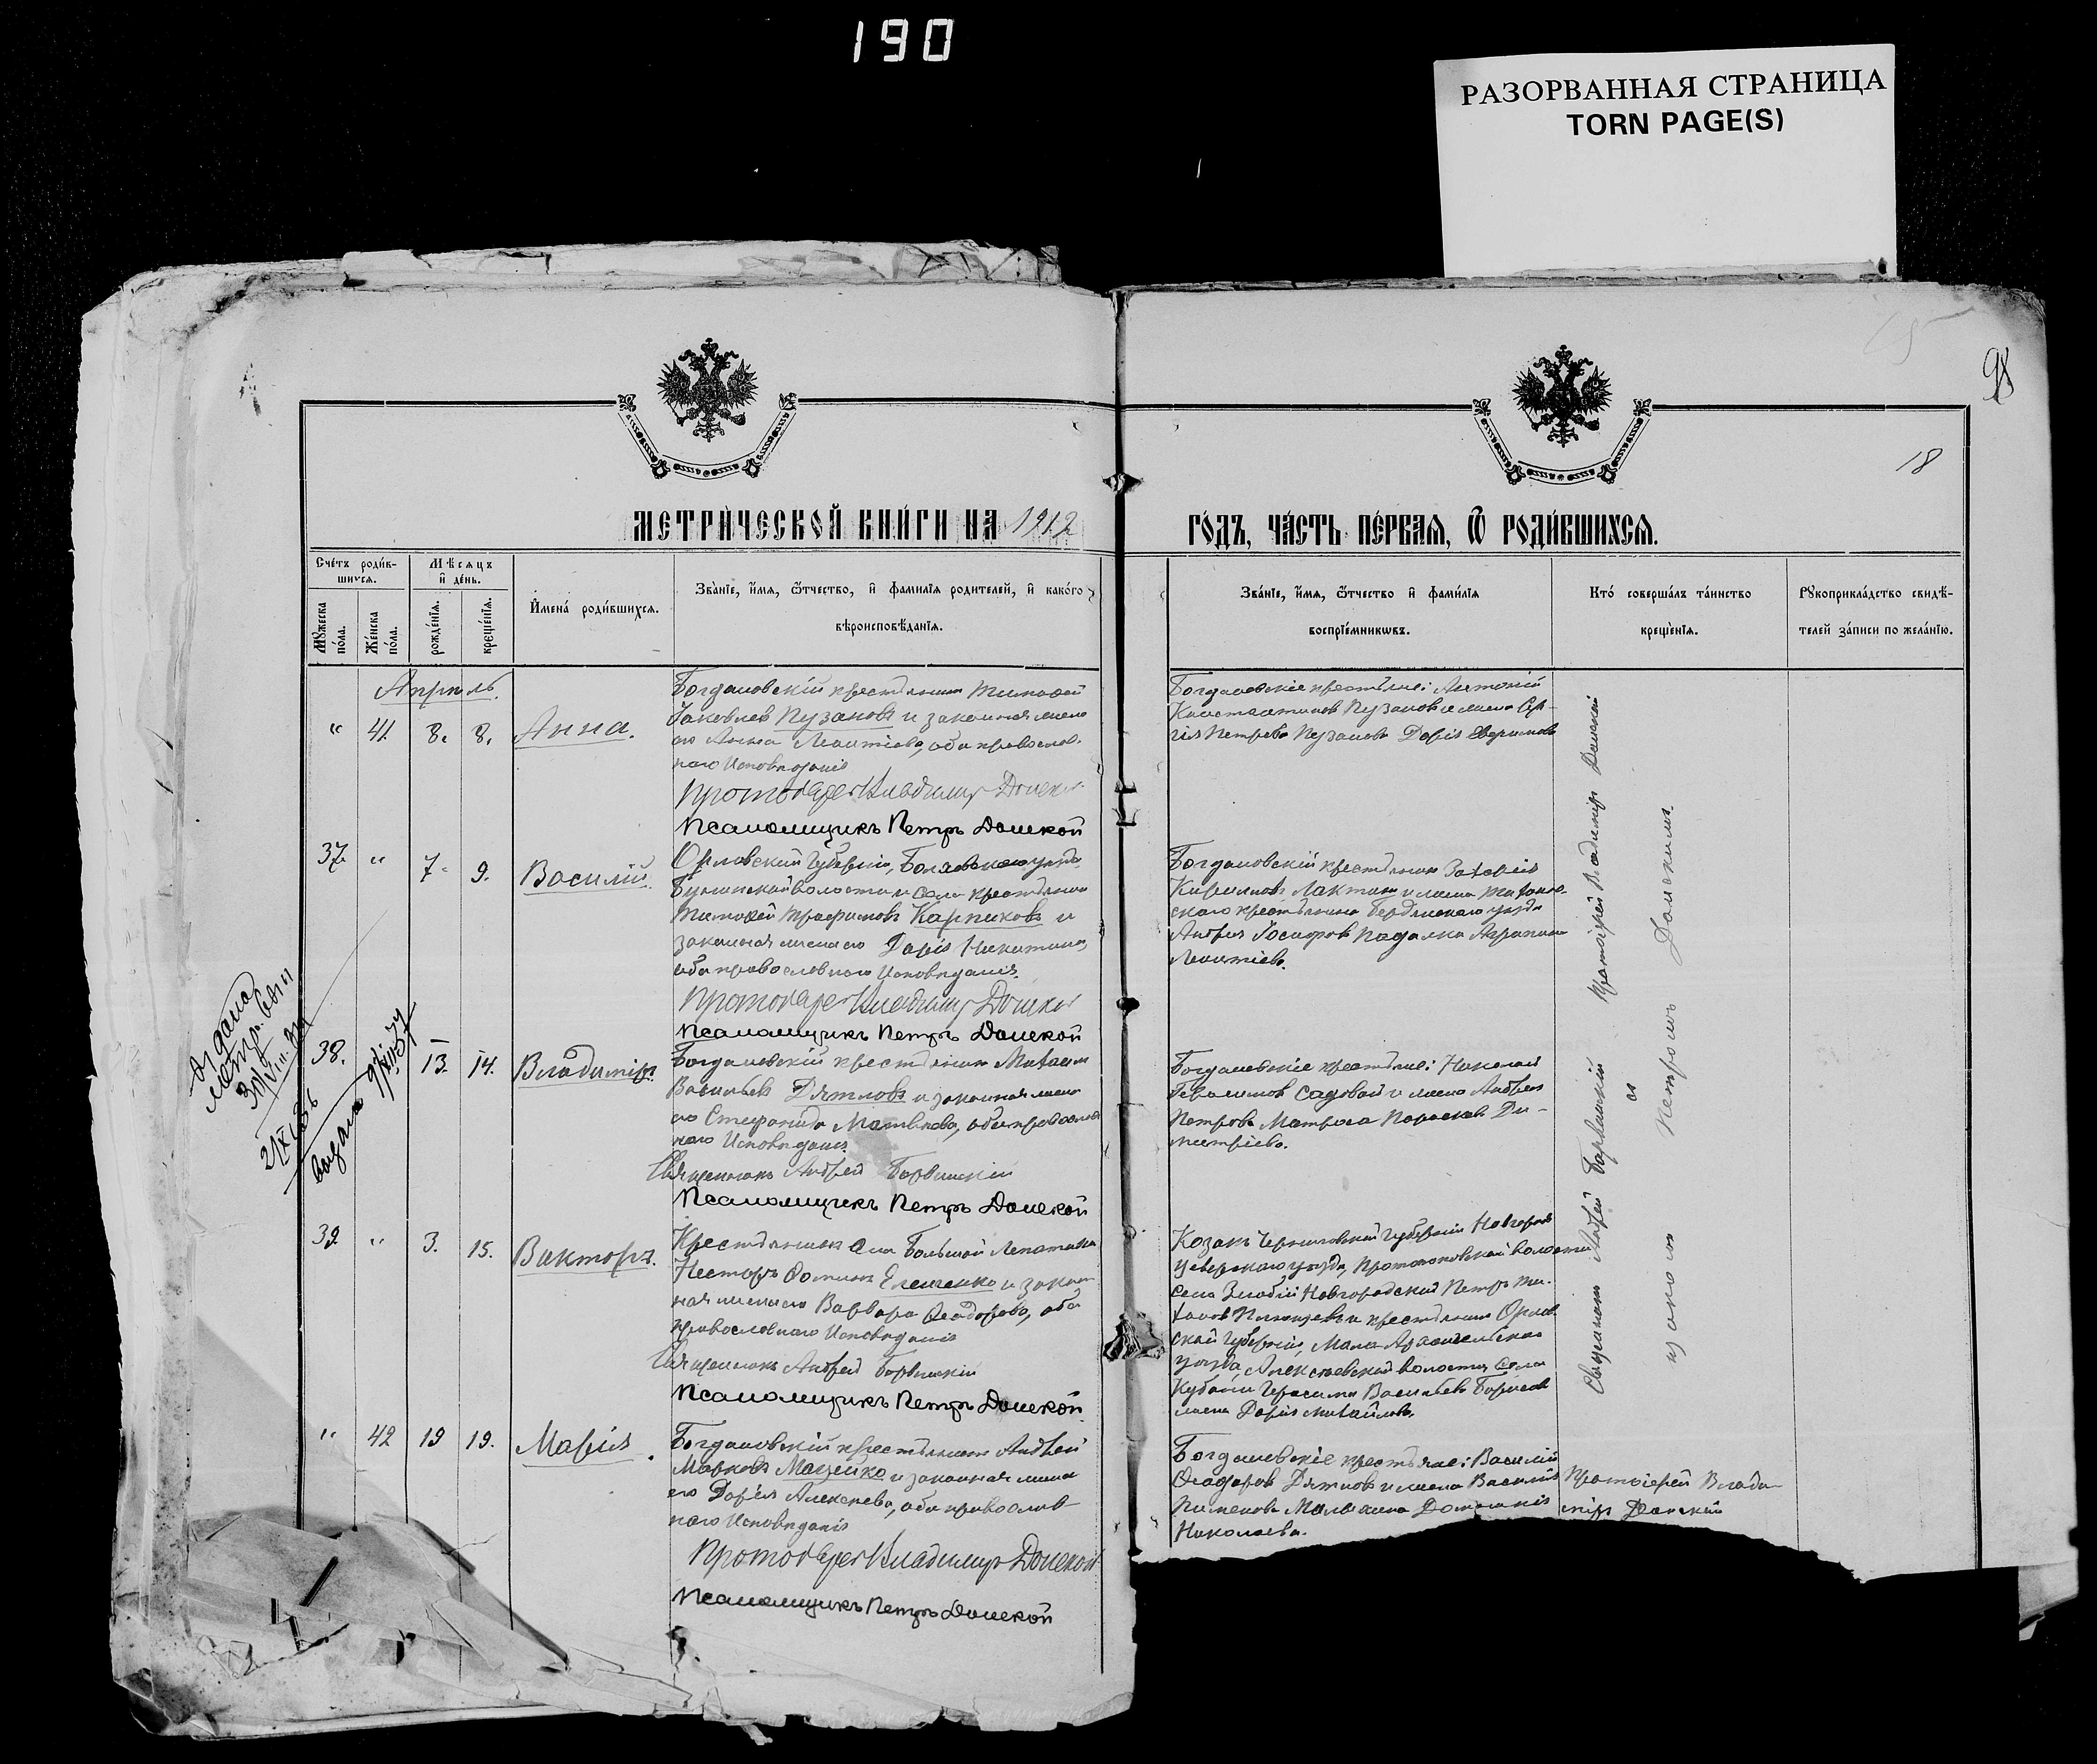 190
РАЗОРВАННАЯ СТРАНИЦА
TORN PAGE(S)
18
МЕТРИ́ЧЕСКОЙ КНИ́ГИ НА 1912
ГО́ДЪ, ЧА́СТЬ ПЕ́РВАЯ, Ѿ РОДИ́ВШИХСЯ.
Сче́тъ роди́в-
шихся.
Мѣсяцъ
и де́нь.
Мꙋ́жеска
по́ла.
Же́нска
по́ла.
рожде́нїя.
креще́нїя.
И́мена́ роди́вшихся.
Зва́нїе, и́мя, ѻ́тчество, и фамилїя родителей, и како́го
вѣроисповѣ́данїя.
Зва́нїе, и́мя, ѻ́тчество и фами́лїя
воспрїе́мникѡвъ.
Кто́ соверша́лъ та́инство
креще́нїя.
Рꙋкоприкла́дство свидѣ́-
телей за́писи по жела́нїю.
Апрѣль.
" 41. 8. 8. Анна.
Богдановскій крестьянин Тимофей
Іаковлевъ Пузановъ и законная жена
его Анна Леонтіева, оба православ-
наго Исповѣданія
Протоіерей Владимир Донской
Псаломщикъ Петръ Донской
Богдановскіе крестьяне: Антоній
Константиновъ Пузановъ и жена Сер-
гія Петрова Пузанова Дарія
37. " 7. 9. Василій.
Орловской Губерніи, Болховского уезда
волости и села крестьянин
Тимофей Трофимовъ Карпиковъ и
законная жена его Дарія Никитина,
оба православнаго Исповѣданія.
Протоіерей Владимир Донской
Псаломщикъ Петръ Донской
Богдановскій крестьянин Захарія
Кириллов Лактин и жена
скаго крестьянина Бердянскаго уезда
Андрея Іосифова Падалка Агрипина
Леонтіева.
38. 13. 14. Владиміръ.
Богдановскій крестьянин Михаил
Васильевъ Дятловъ и законная жена
его Стефанида Матвѣева, оба православ-
наго Исповѣданія.
Священникъ Андрей Барвинскій
Псаломщикъ Петръ Донской
Богдановскіе крестьяне: Николай
Герасимов Садовой и жена Андрея
Петрова Матроса Параскева Ди-
митріева.
39. " 3. 15. Викторъ.
Крестьянинъ села Большой Лепатихи
Несторъ Фотиевъ Елешенко и закон-
ная жена его Варвара Ѳеодорова, оба
православнаго Исповѣданія
Священникъ Андрей Барвинскій
Псаломщикъ Петръ Донской
Козакъ Черниговской Губерніи Новгород
Сѣверскаго уезда, Протопоповской волости
села Новгородский Петръ Ти-
и крестьянин Орлов-
ской Губерніи, Мало Архангельскаго
уезда, Алексѣевской волости села
Герасима Васильева Борисов
жена Дарія Михайлова.
" 42 19 19. Марія.
Богдановскій крестьянин Андрей
Марковъ Мацейко и законная жена
его Дарія Алексѣева, оба православ-
наго Исповѣданія
Протоіерей Владимир Донской
Псаломщикъ Петръ Донской
Богдановскіе крестьяне: Василій
Ѳеодоров Дятловъ и жена Василія
Пименова Домникія
Николаева.
Протоіерей Влади-
міръ Донской
Священникъ Андрей Барвинскій Протоіерей Владимір Донской
съ
Петромъ Донскимъ.